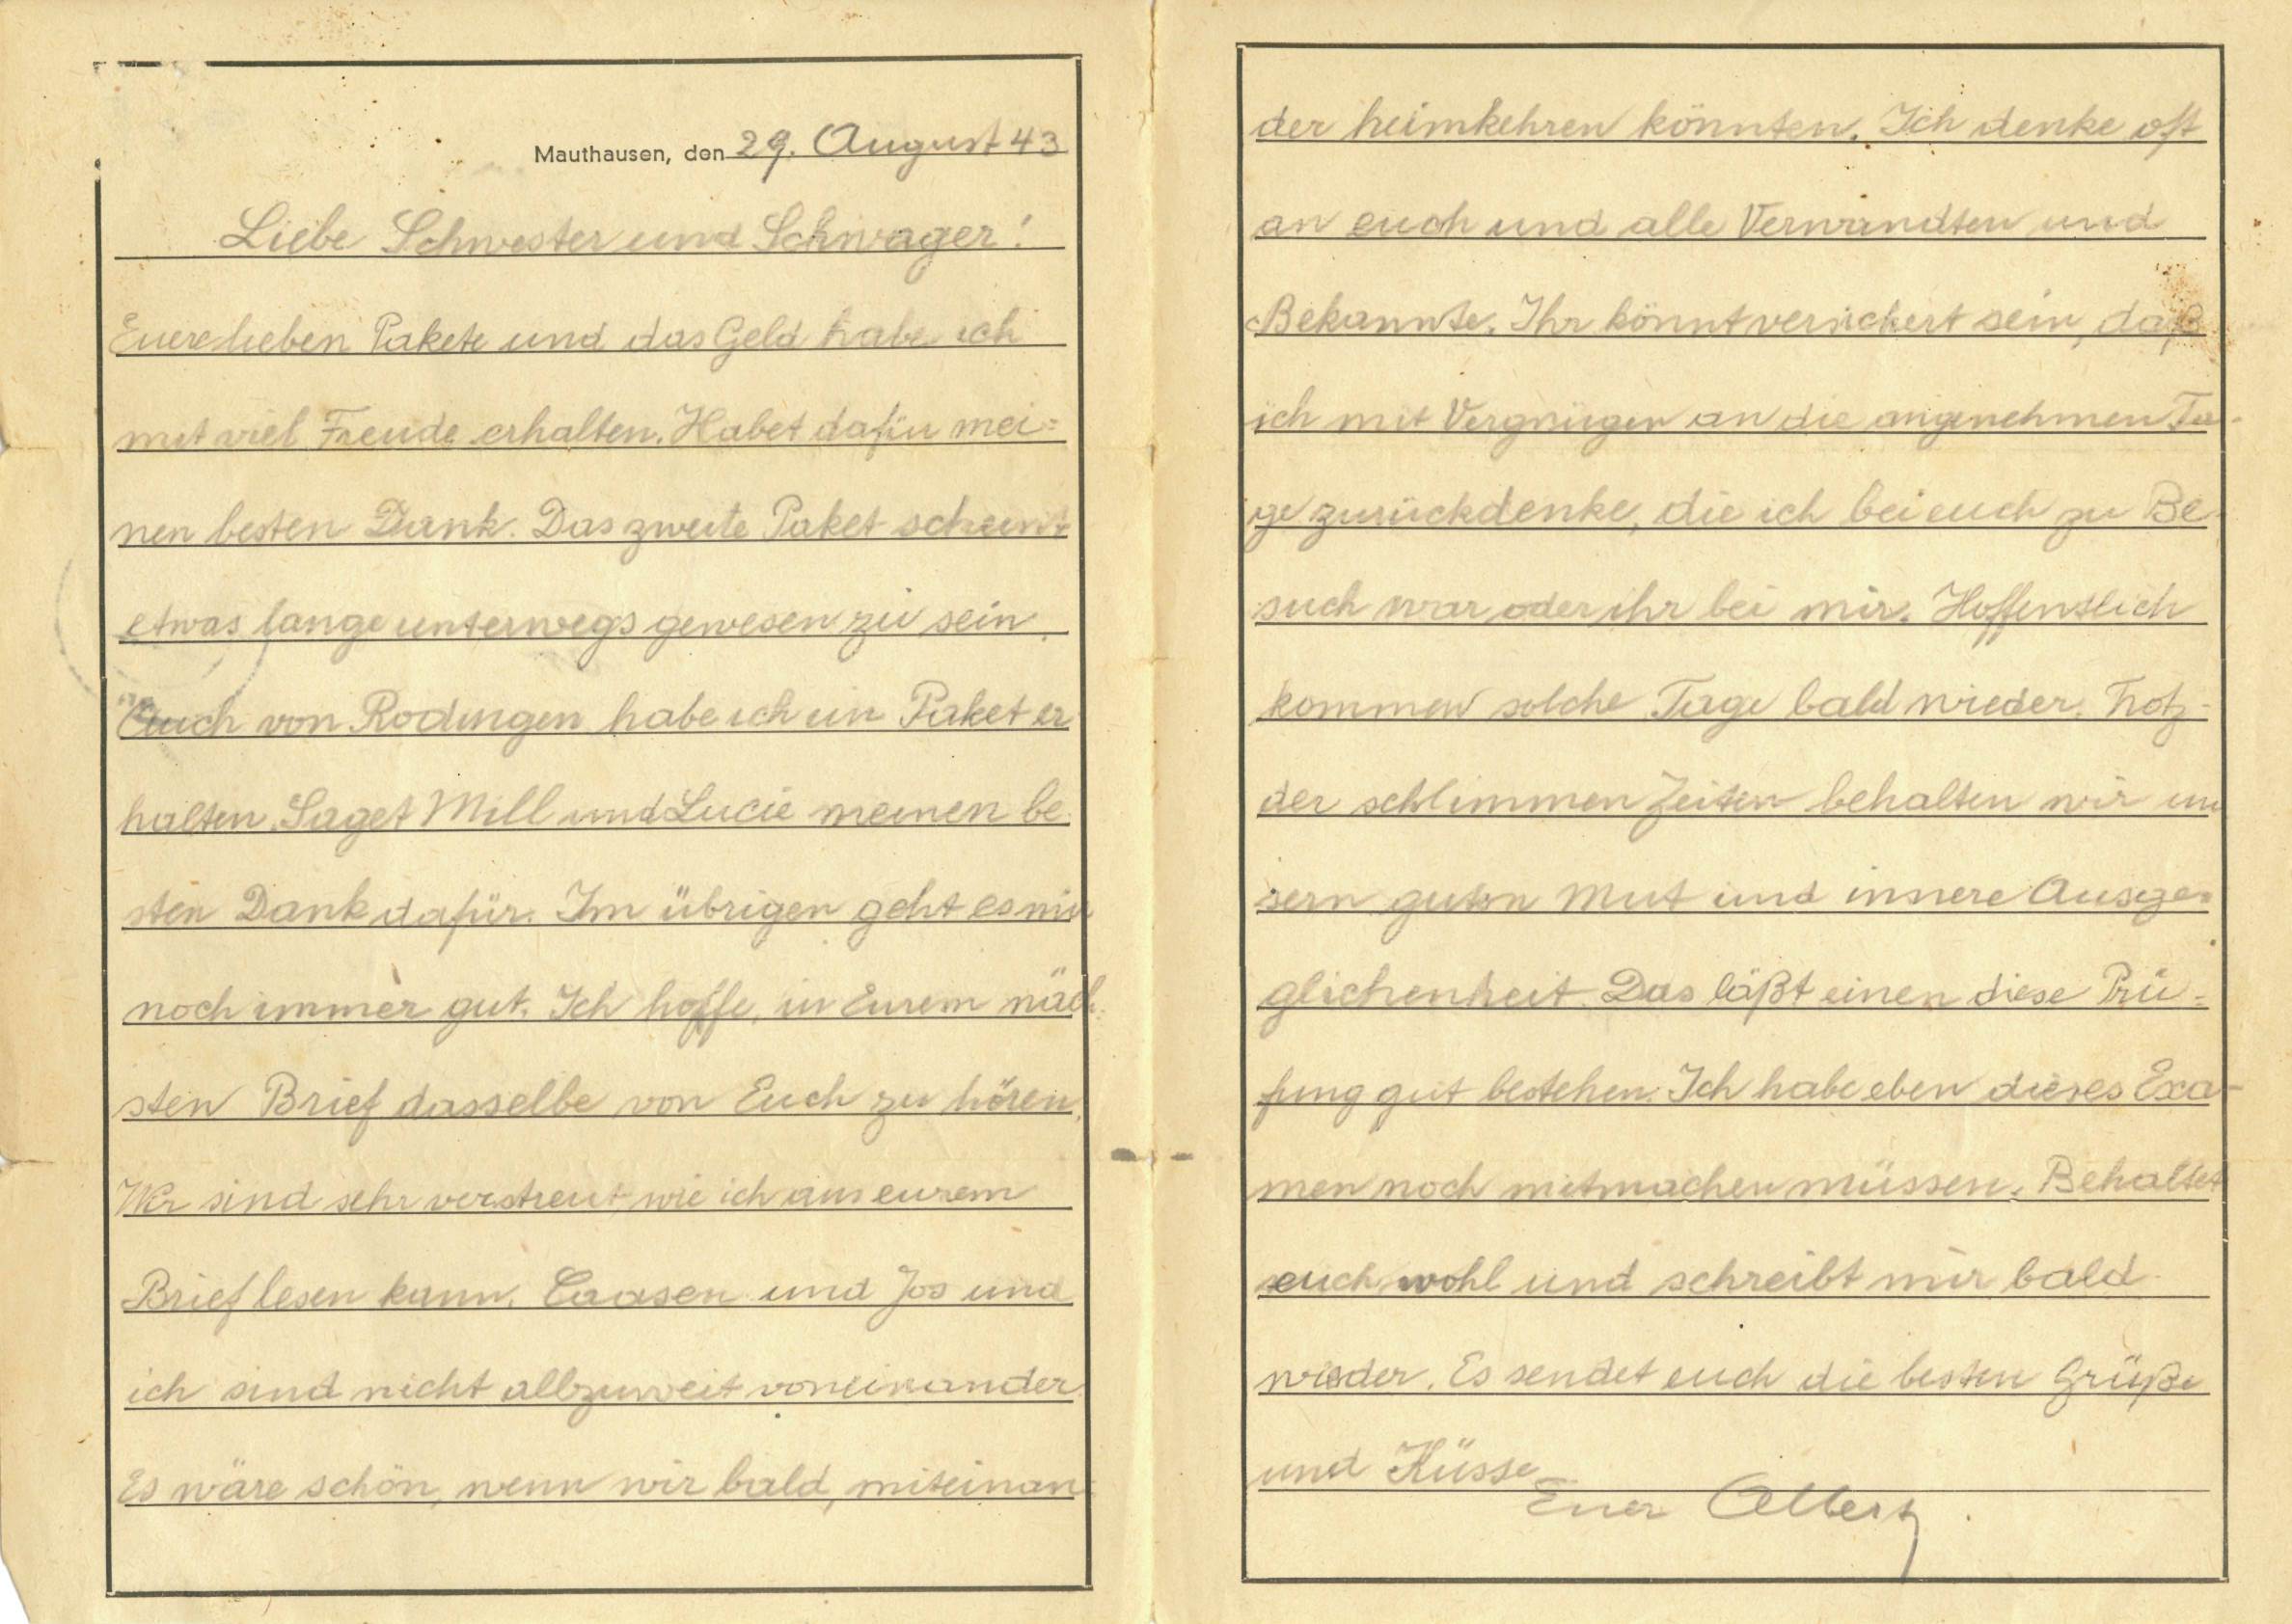 Mauthausen, den 29. August 43
Liebe Schwester und Schwager!
Euere lieben Pakete und das Geld habe ich
mit viel Freude erhalten. Habet dafür mei=
nen besten Dank. Das zweite Paket scheint
etwas lange unterwegs gewesen zu sein.
Auch von Rodingen habe ich ein Paket er
halten. Saget Mill und Lucie meinen be
sten Dank dafür. Im übrigen geht es mir
noch immer gut. Ich hoffe, in Eurem näch
sten Brief dasselbe von Euch zu hören.
Wir sind sehr verstreut, wie ich aus eurem
Brief lesen kann. Caasen und Jos und
ich sind nicht allzuweit voneinander.
Es wäre schön, wenn wir bald, miteinan=
der heimkehren könnten. Ich denke oft
an euch und alle Verwandten und
Bekannte. Ihr könnt versichert sein, daß
ich mit Vergnügen an die angenehmen Ta-
ge zurückdenke, die ich bei euch zu Be-
such war oder ihr bei mir. Hoffentlich
kommen solche Tage bald wieder. Trotz-
der schlimmen Zeiten behalten wir un
sern guten Mut und innere Ausge=
glichenheit. Das läßt einen diese Prü=
fung gut bestehen. Ich habe eben dieses Exa-
men noch mitmachen müssen. Behaltet
euch wohl und schreibt mir bald
wieder. Es sendet euch die besten Grüße
und Küsse
Euer Albert.